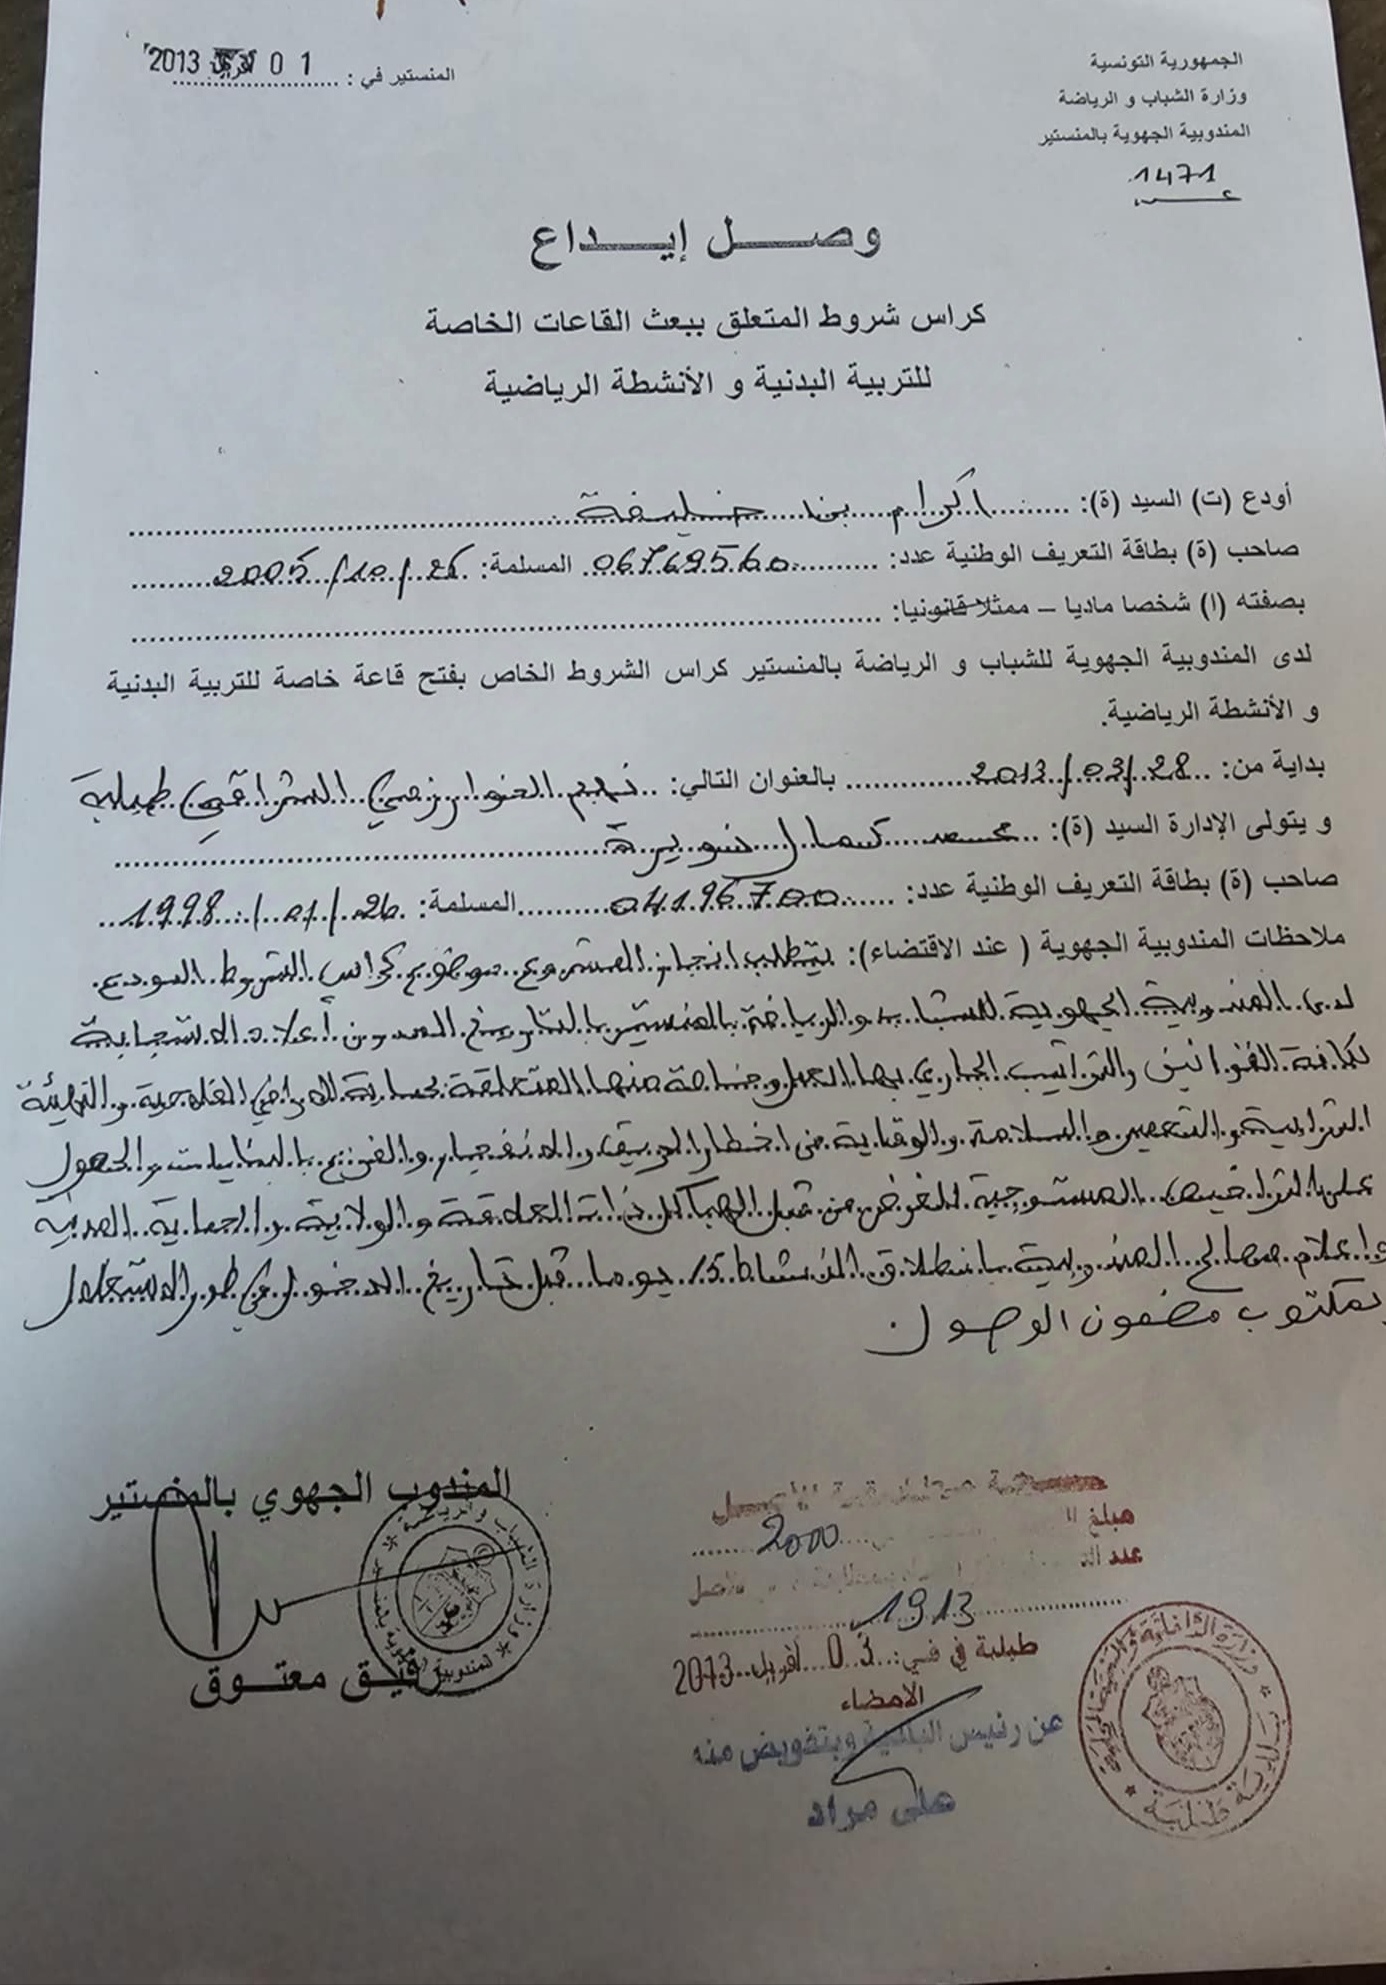 الجمهورية التونسية
وزارة الشباب و الرياضة
المندوبية الجهوية بالمنستير
1471
المنستير في : 01 أفريل 2013
وصل إيداع
كراس شروط المتعلق ببعث القاعات الخاصة
للتربية البدنية و الأنشطة الرياضية
أودع (ت) السيد (ة): اكرام بن خليفة
صاحب (ة) بطاقة التعريف الوطنية عدد: 06769560 المسلمة: 26/10/2005
بصفته (ا) شخصا ماديا – ممثلا قانونيا:
لدى المندوبية الجهوية للشباب و الرياضة بالمنستير كراس الشروط الخاص بفتح قاعة خاصة للتربية البدنية
و الأنشطة الرياضية.
بداية من: 28/03/2013 بالعنوان التالي: نهج الخوارزمي الشراقي طبلبة
و يتولى الإدارة السيد (ة): محمد كمال نويرة
صاحب (ة) بطاقة التعريف الوطنية عدد: 04196700 المسلمة: 26/01/1998
ملاحظات المندوبية الجهوية ( عند الاقتضاء): يتطلب انجاز المشروع موضوع كراس الشروط المودع
لدى المندوبية الجهوية للشباب والرياضة بالمنستير بالتاريخ المدون أعلاه الاستجابة
لكافة القوانين والتراتيب الجاري بها العمل وخاصة منها المتعلقة بحماية الاراضي الفلاحية والتهيئة
الترابية والتعمير والسلامة والوقاية من اخطار الحريق والانفجار والفزع بالبنايات والحصول
على التراخيص المستوجبة للغرض من قبل الهياكل ذات العلاقة والولاية والحماية المدنية
واعلام مصالح المندوبية بانطلاق النشاط 15 يوما قبل تاريخ الدخول في طور الاستغلال
بمكتوب مضمون الوصول.
المندوب الجهوي بالمنستير
رفيق معتوق
مبلغ
2000
عدد
1913
طبلبة في في: 03 أفريل 2013
الامضاء
عن رئيس البلدية وبتفويض منه
علي مراد